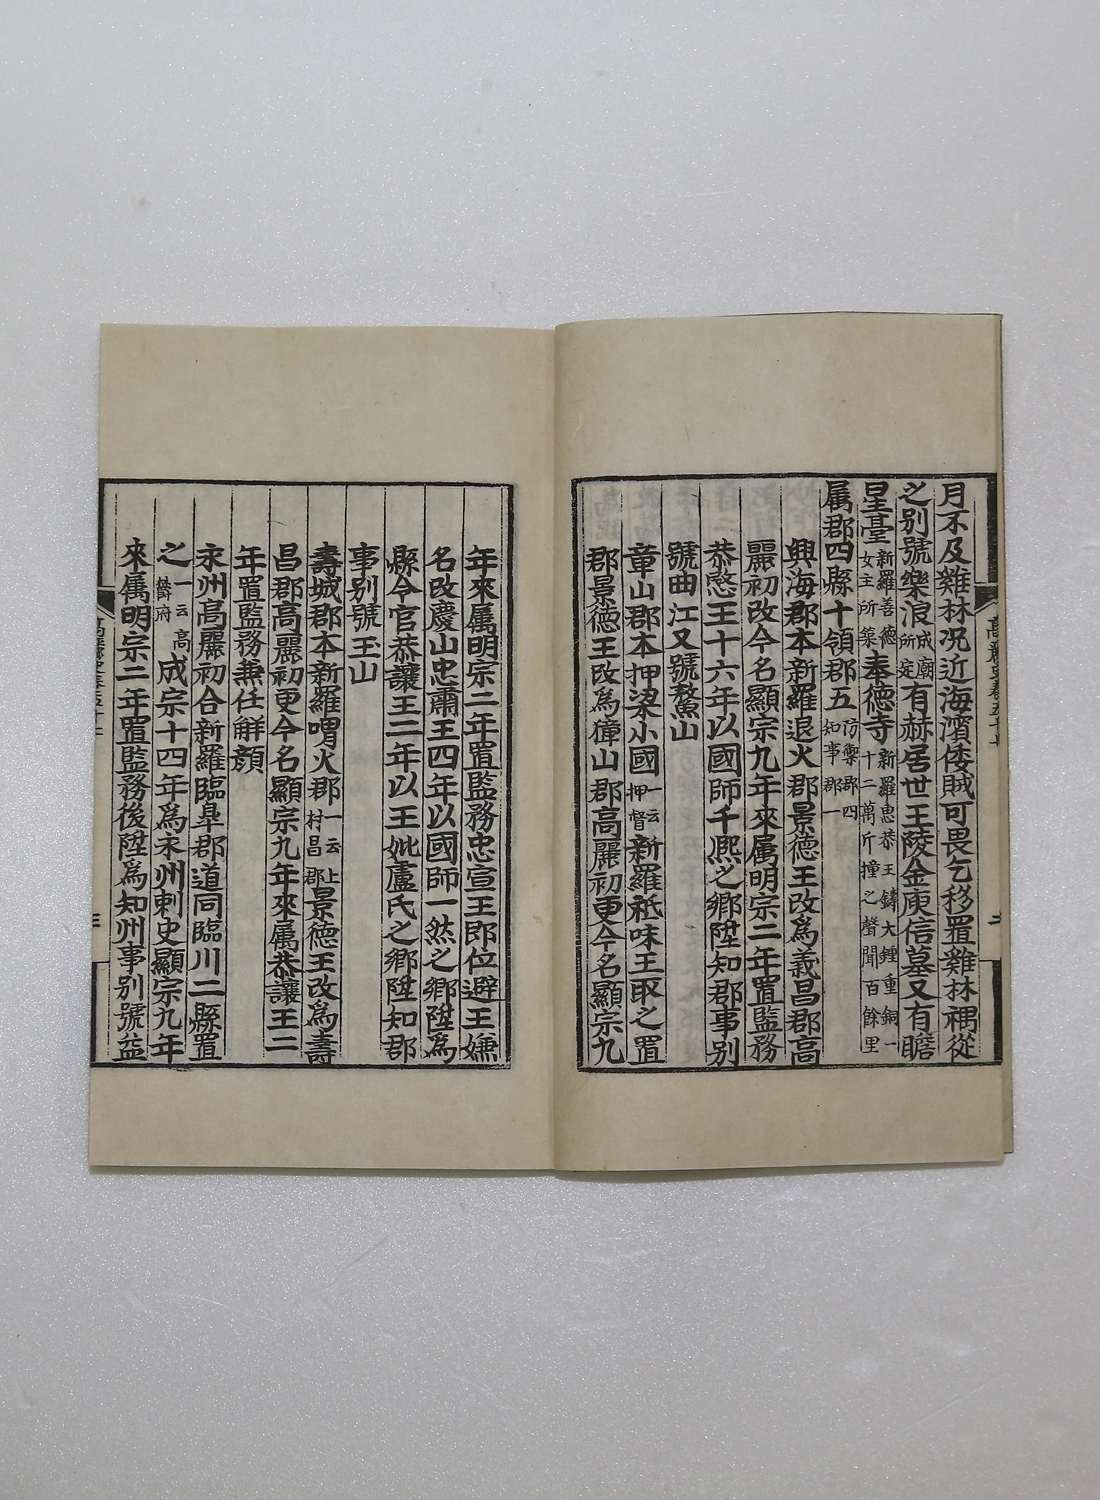 月不及雞林况近海濱倭賊可畏乞移置雞林禑從
之别號樂浪成廟所定有赫居世王陵金庾信墓又有瞻
星臺新羅善德女主所築奉德寺新羅惠恭王鑄大鍾重銅一十二萬斤撞之聲聞百餘里
属郡四縣十領郡五防禦郡四知事郡一
興海郡本新羅退火郡景德王改爲義昌郡高
麗初改今名顯宗九年來属明宗二年置監務
恭愍王十六年以國師千熙之鄉陞知郡事别
號曲江又號鰲山
章山郡本押梁小國一云押督新羅祇味王取之置
郡景德王改爲獐山郡高麗初更今名顯宗九
年來属明宗二年置監務忠宣王即位避王嫌
名改慶山忠肅王四年以國師一然之鄉陞爲
縣令官恭讓王二年以王妣盧氏之鄉陞知郡
事别號玉山
壽城郡本新羅喟火郡一云上村昌郡景德王改爲壽
昌郡高麗初更今名顯宗九年來属恭讓王二
年置監務兼任解顔
永州高麗初合新羅臨臯郡道同臨川二縣置
之一云高鬱府成宗十四年爲永州刺史顯宗九年
來属明宗二年置監務後陞爲知州事别號益